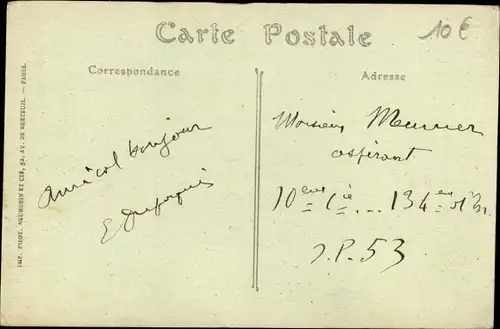 Carte Postale
10 €
Correspondance
Adresse
Amical bonjour
E
Monsieur Meunier
aspirant
10eme Cie ... 134e
S.P. 53
IMP. PHOT. NEURDEIN ET CIE, 52, AV. DE BRETEUIL. — PARIS.